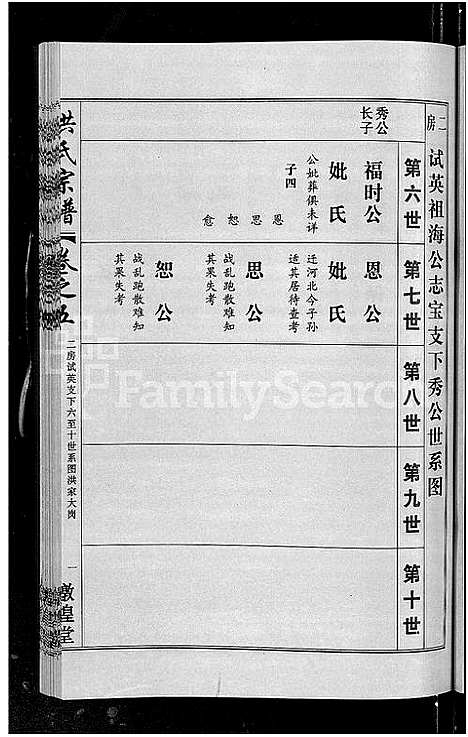 二房
试英祖海公志宝支下秀公世系图
第六世
第七世
第八世
第九世
第十世
秀公
长子
福时公
妣氏
公妣葬俱未详
子四
恩
思
恕
愈
恩公
妣氏
迁河北今子孙
适其居待查考
思公
战乱跑散难知
其果失考
恕公
战乱跑散难知
其果失考
洪氏宗谱
卷之五
二房试英支下六至十世系图洪家大岗
一
敦煌堂
FamilySearch